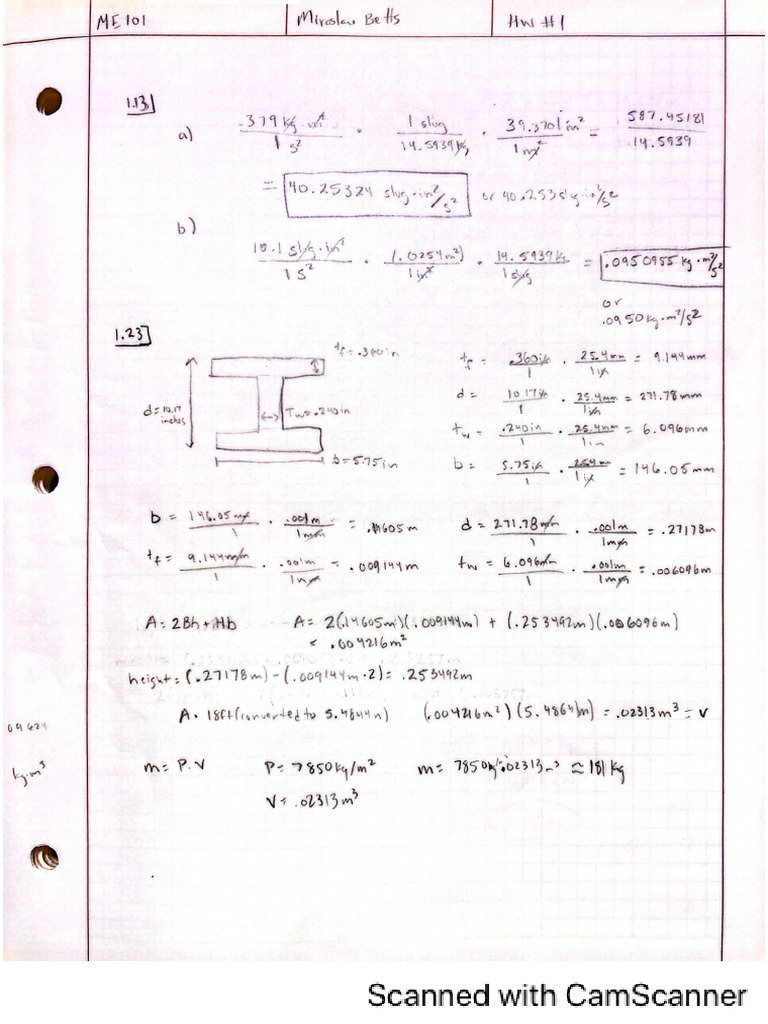 ME 101 Miroslav Betts HW #1
1.13
a) .379 kg·m² / 1 s² · 1 slug / 14.5939 kg · 39.3701 in² / 1 m² = 587.45181 / 14.5939
= 40.25324 slug·in²/s² or 40.253 slug·in²/s²
b)
10.1 slug·in² / 1 s² · (.0254 m²) / 1 in² · 14.5939 kg / 1 slug = .0950955 kg·m²/s²
or
.0950 kg·m²/s²
1.23
tf = .360 in
d = 10.17 inches
Tw = .240 in
b = 5.75 in
tf = .360 in / 1 · 25.4 mm / 1 in = 9.144 mm
d = 10.17 in / 1 · 25.4 mm / 1 in = 271.78 mm
tw = .240 in / 1 · 25.4 mm / 1 in = 6.096 mm
b = 5.75 in / 1 · 25.4 m / 1 in = 146.05 mm
b = 146.05 mm / 1 · .001 m / 1 mm = .14605 m d = 271.78 mm / 1 · .001 m / 1 mm = .27178 m
tf = 9.144 mm / 1 · .001 m / 1 mm = .009144 m tw = 6.096 mm / 1 · .001 m / 1 mm = .006096 m
A = 2Bh + Hb A = 2(.14605 m)(.009144 m) + (.253492 m)(.006096 m)
= .004216 m²
height = (.27178 m) - (.009144 m · 2) = .253492 m
A · 18ft (converted to 5.4864 m) (.004216 m²)(5.4864 m) = .02313 m³ = V
m = P·V P = 7850 kg/m² m = 7850 kg · .02313 m³ ≈ 181 kg
V = .02313 m³
kg·m³
Scanned with CamScanner